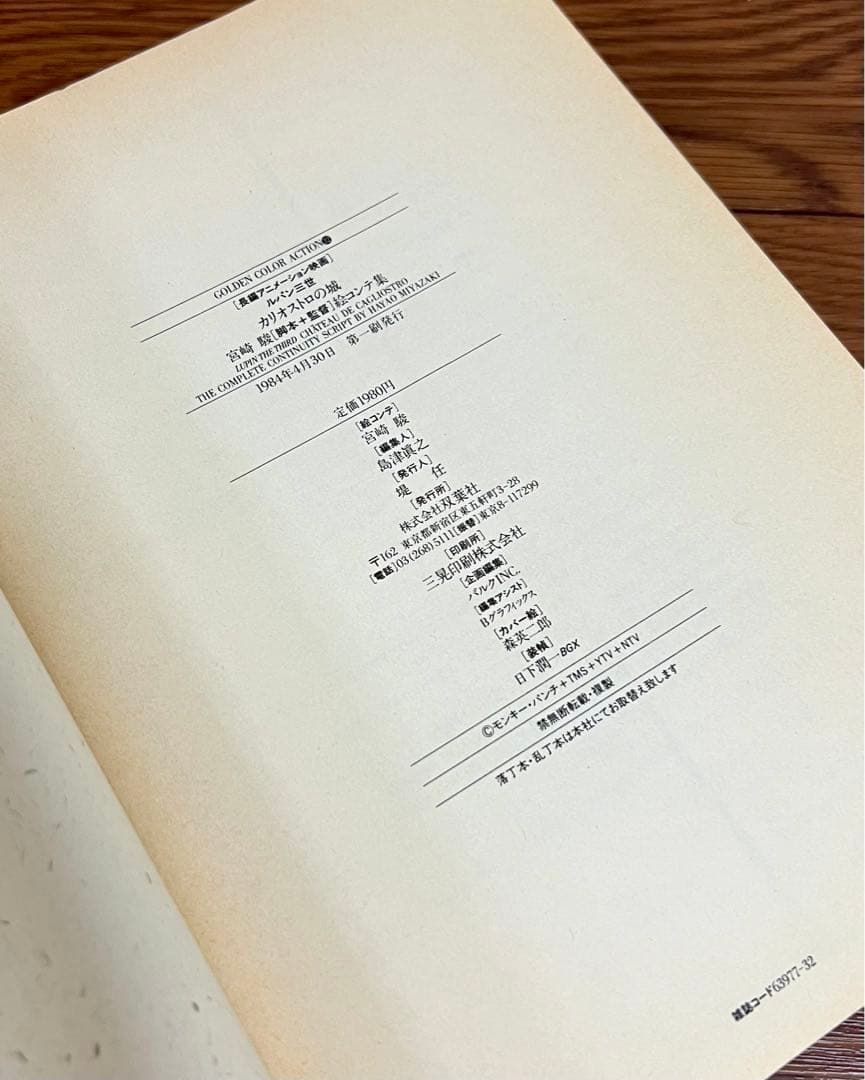 GOLDEN COLOR ACTION
[長編アニメーション映画]
ルパン三世
カリオストロの城
宮崎 駿[脚本+監督]絵コンテ集
LUPIN THE THIRD CHÂTEAU DE CAGLIOSTRO
THE COMPLETE CONTINUITY SCRIPT BY HAYAO MIYAZAKI
1984年4月30日 第一刷発行
定価1980円
[絵コンテ]
宮崎 駿
[編集人]
島津眞之
[発行人]
堤 任
[発行所]
株式会社双葉社
〒162 東京都新宿区東五軒町3-28
[電話]03(268)5111[振替]東京8-117299
[印刷所]
三晃印刷株式会社
[企画編集]
バルクINC.
[編集アシスト]
Bグラフィックス
[カバー絵]
森英二郎
[装幀]
日下潤一BGX
©モンキー・パンチ+TMS+YTV+NTV
禁無断転載・複製
落丁本・乱丁本は本社にてお取替え致します
雑誌コード63977-32